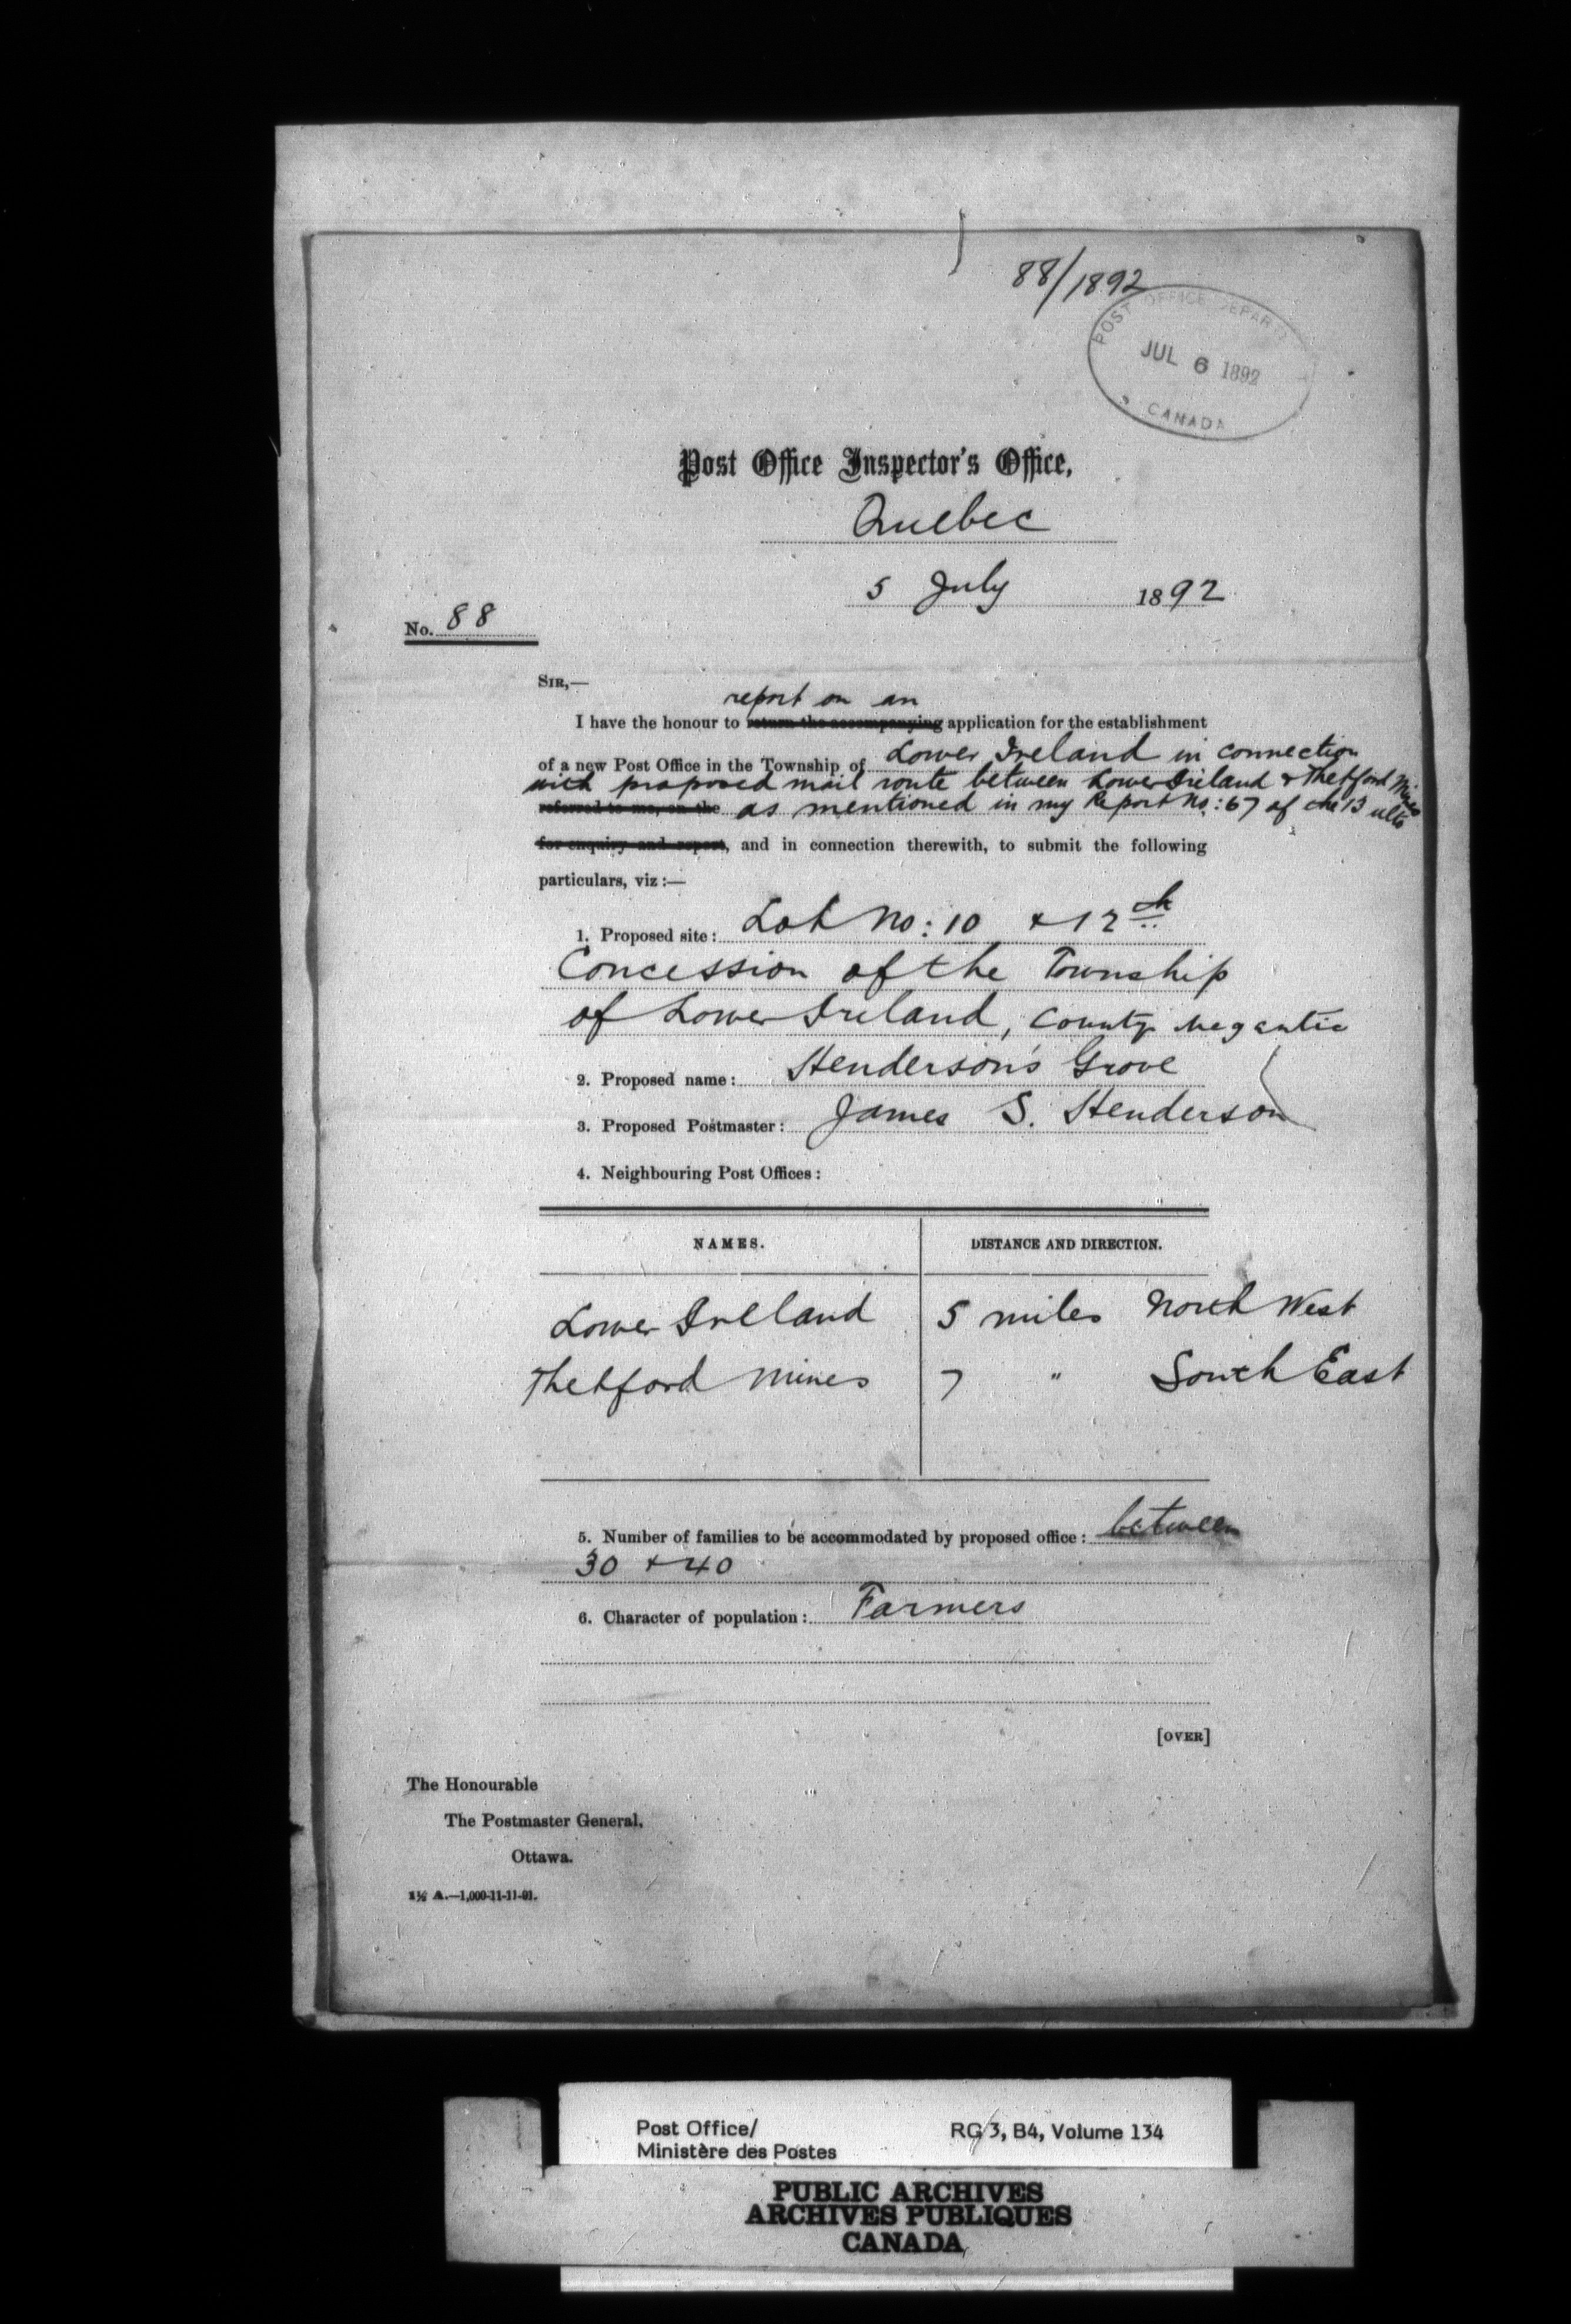 88/1892
POST OFFICE DEPART
JUL 6 1892
CANADA
Post Office Inspector's Office,
Quebec
5 July 1892
No. 88
SIR,—
report on an
I have the honour to return the accompanying application for the establishment
of a new Post Office in the Township of Lower Ireland in connection
with proposed mail route between Lower Ireland & Thetford Mines
referred to me, on the as mentioned in my Report No: 67 of the 13 ulto
for enquiry and report, and in connection therewith, to submit the following
particulars, viz :—
1. Proposed site: Lot No: 10 & 12th
Concession of the Township
of Lower Ireland, County Megantic
2. Proposed name: Henderson's Grove
3. Proposed Postmaster: James S. Henderson
4. Neighbouring Post Offices:
NAMES. DISTANCE AND DIRECTION.
Lower Ireland 5 miles North West
Thetford Mines 7 " South East
5. Number of families to be accommodated by proposed office: between
30 & 40
6. Character of population: Farmers
[OVER]
The Honourable
The Postmaster General,
Ottawa.
1½ A.—1,000-11-11-91.
Post Office/ RG 3, B4, Volume 134
Ministère des Postes
PUBLIC ARCHIVES
ARCHIVES PUBLIQUES
CANADA